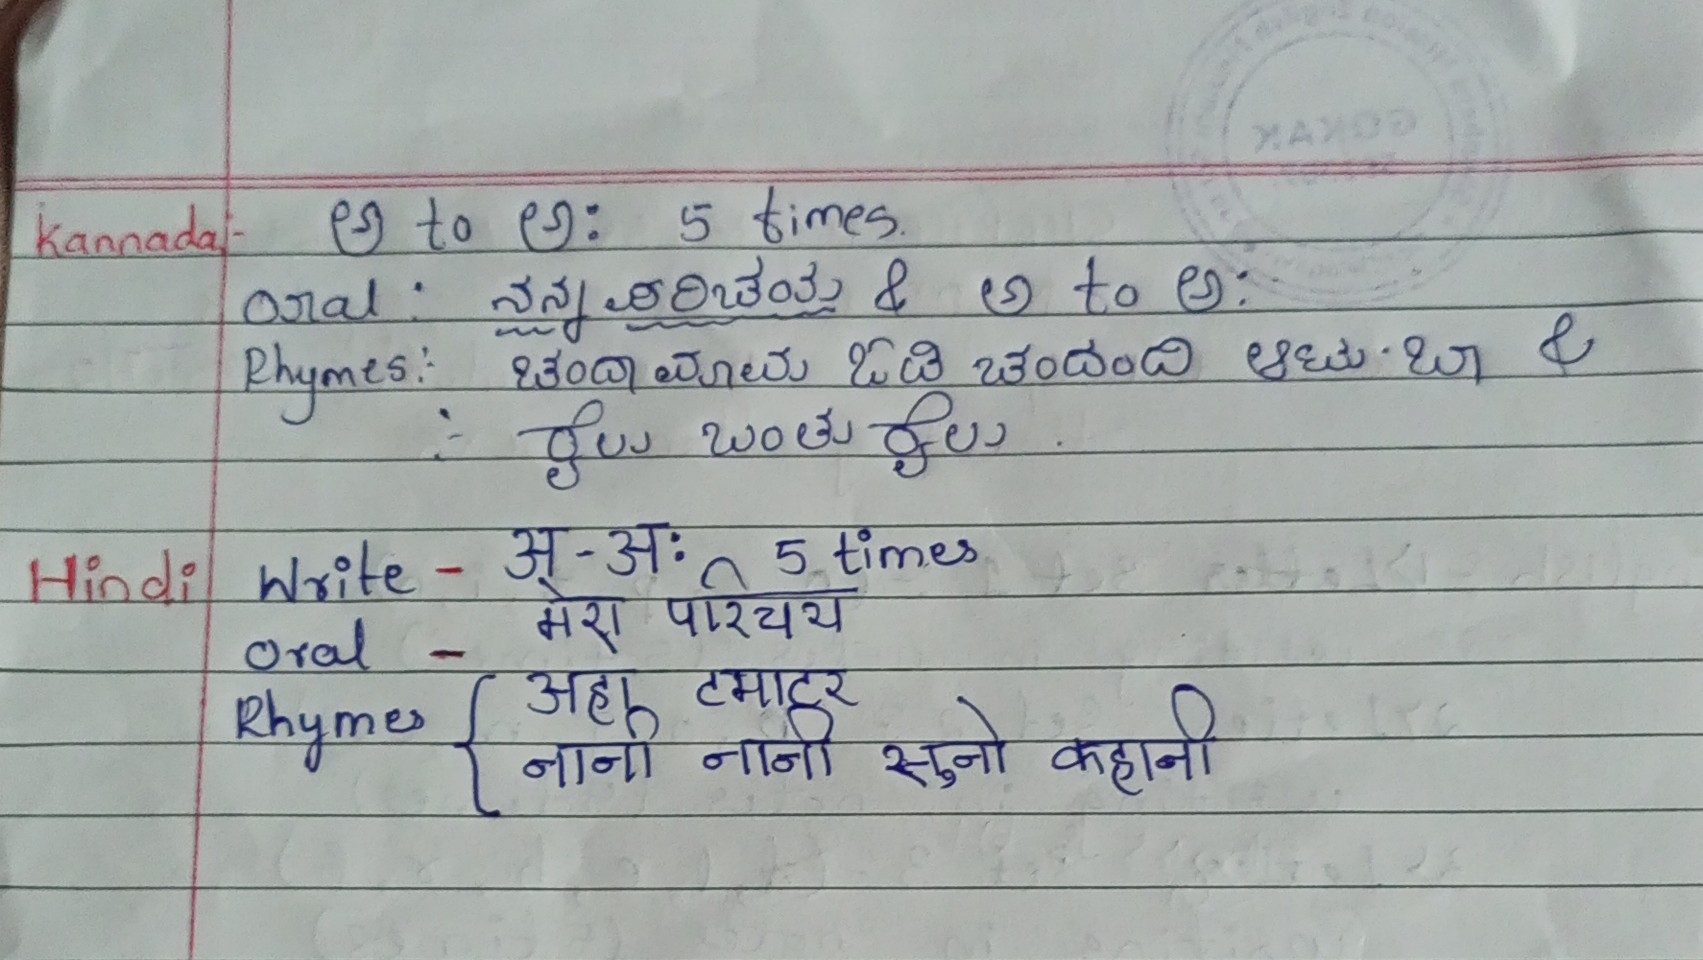 Kannada:- ಅ to ಅ: 5 times.
Oral : ನನ್ನ ಪರಿಚಯ & ಅ to ಅ:
Rhymes:- ಚಂದಾಮಾಮ ಓಡಿ ಚಂದದಿ ಆಡು ಬಾ &
:- ರೈಲು ಬಂತು ರೈಲು .
Hindi Write - अ - अः 5 times
Oral - मेरा परिचय
Rhymes { अहा टमाटर
नानी नानी सुनो कहानी
GOKAK